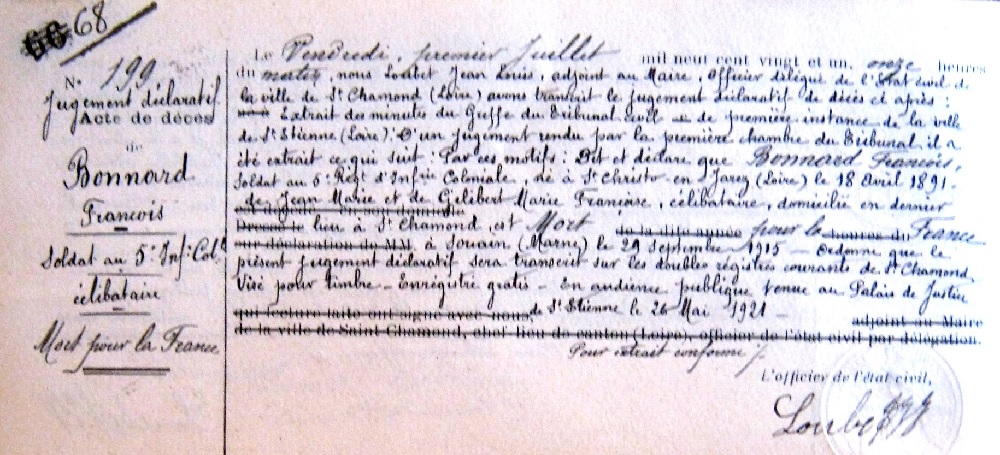 66 68
N° 199
Jugement déclaratif
Acte de décès
de
Bonnard
François
Soldat au 5e Inf: Col.le
célibataire
Mort pour la France
Le Vendredi, premier Juillet mil neuf cent vingt et un, onze heures
du matin, nous Loubet Jean Louis, adjoint au Maire, Officier délégué de l'Etat civil de
la ville de St Chamond (Loire) avons transcrit le jugement déclaratif de décès ci après :
Extrait des minutes du Greffe du Tribunal Civil de première instance de la ville
de St Etienne (Loire). D'un jugement rendu par la première chambre du Tribunal il a
été extrait ce qui suit : Par ces motifs : Dit et déclare que Bonnard François,
Soldat au 5e Régt d'Infrie Coloniale, né à St Christo en Jarez (Loire) le 18 Avril 1891.
de Jean Marie et de Gélibert Marie Françoise, célibataire, domicilié en dernier
lieu à St Chamond, est Mort de la dite année pour la heures du France
sur déclaration de MM, à Souain (Marne) le 29 Septembre 1915 — Ordonne que le
présent jugement déclaratif sera transcrit sur les doubles régistres courants de St Chamond
Visé pour timbre — Enregistré gratis — En audience publique tenue au Palais de Justice
qui lecture faite ont signé avec nous, de St Etienne le 26 Mai 1921 — adjoint au Maire
de la ville de Saint-Chamond, chef-lieu de canton (Loire), officier de l'état civil par délégation.
Pour extrait conforme
L'officier de l'état civil,
Loubet